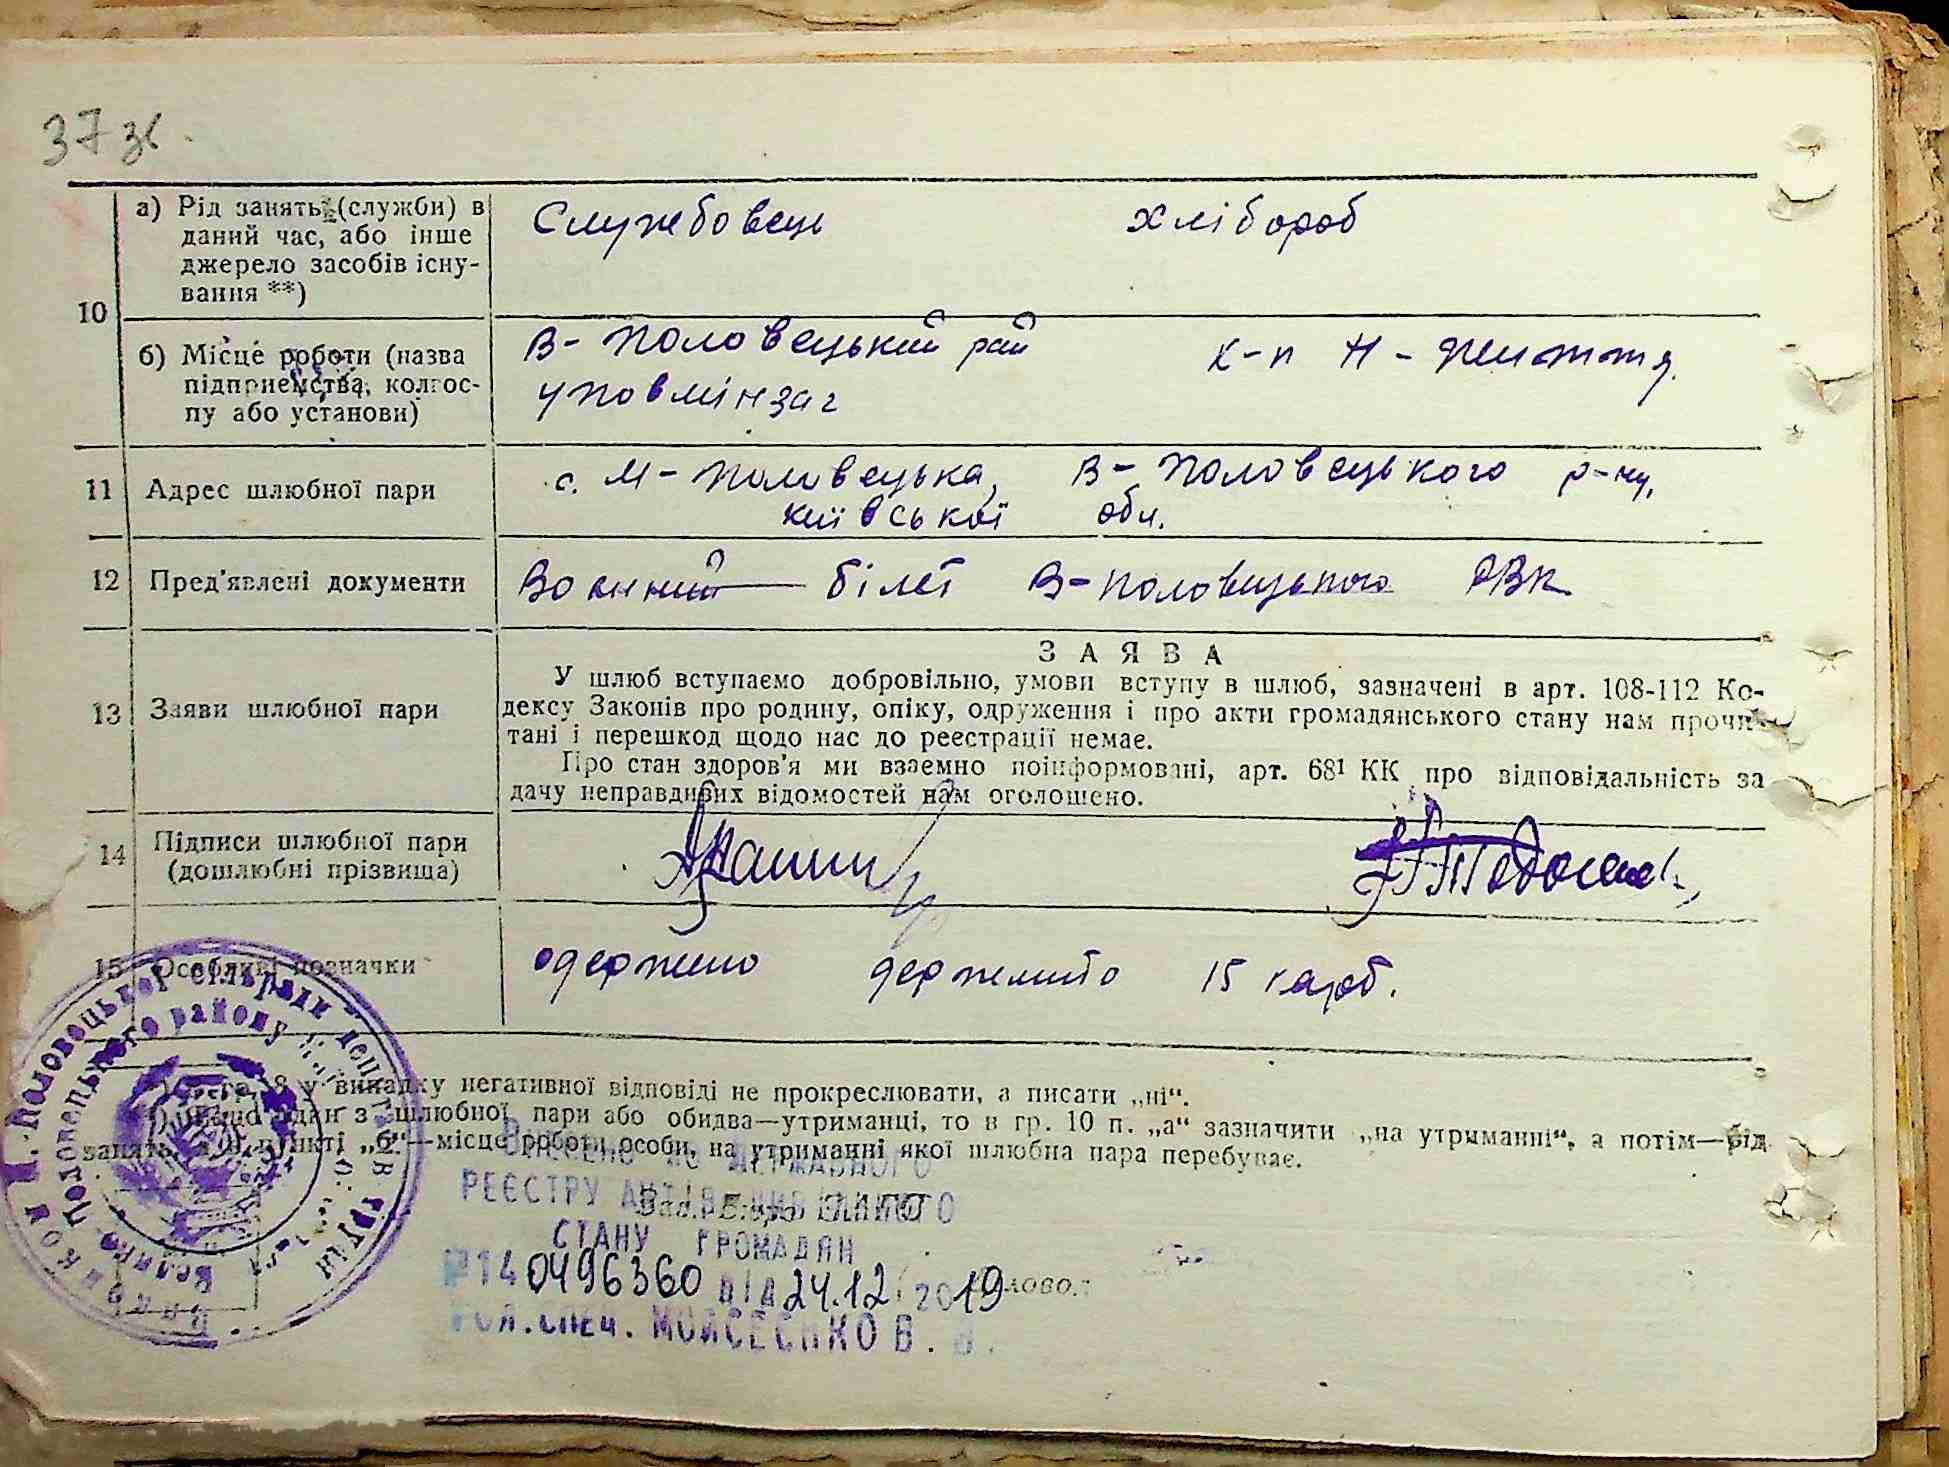 37 зв.
10
а) Рід занять (служби) в
даний час, або інше
джерело засобів існу-
вання **)
Службовець
хлібороб
б) Місце роботи (назва
підприємства, колгос-
пу або установи)
В-Половецький рай
уповмінзаг
к-п Н-життя
11
Адрес шлюбної пари
с. М-Половецька, В-Половецького р-ну,
київської обл.
12
Пред'явлені документи
Воєнний білет В-половецького РВК
13
Заяви шлюбної пари
ЗАЯВА
У шлюб вступаємо добровільно, умови вступу в шлюб, зазначені в арт. 108-112 Ко-
дексу Законів про родину, опіку, одруження і про акти громадянського стану нам прочи-
тані і перешкод щодо нас до реєстрації немає.
Про стан здоров'я ми взаємно поінформовані, арт. 68¹ КК про відповідальність за
дачу неправдивих відомостей нам оголошено.
14
Підписи шлюбної пари
(дошлюбні прізвища)
15
Особливі позначки
одержено держмито 15 карб.
у випадку негативної відповіді не прокреслювати, а писати „ні“.
один з шлюбної пари або обидва—утриманці, то в гр. 10 п. „а“ зазначити „на утриманні“, а потім—рід
занять, а в пункті „б“—місце роботи особи, на утриманні якої шлюбна пара перебуває.
М.-Половецької сільради депутатів трудящ
Половецького району
Велико
ДЕРЖАВНОГО
РЕЄСТРУ АКТІВ ЦИВІЛЬНОГО
СТАНУ ГРОМАДЯН
№14 0496360 від 24.12. 2019
ГОЛ.СПЕЦ. МОЙСЕЄНКО В.